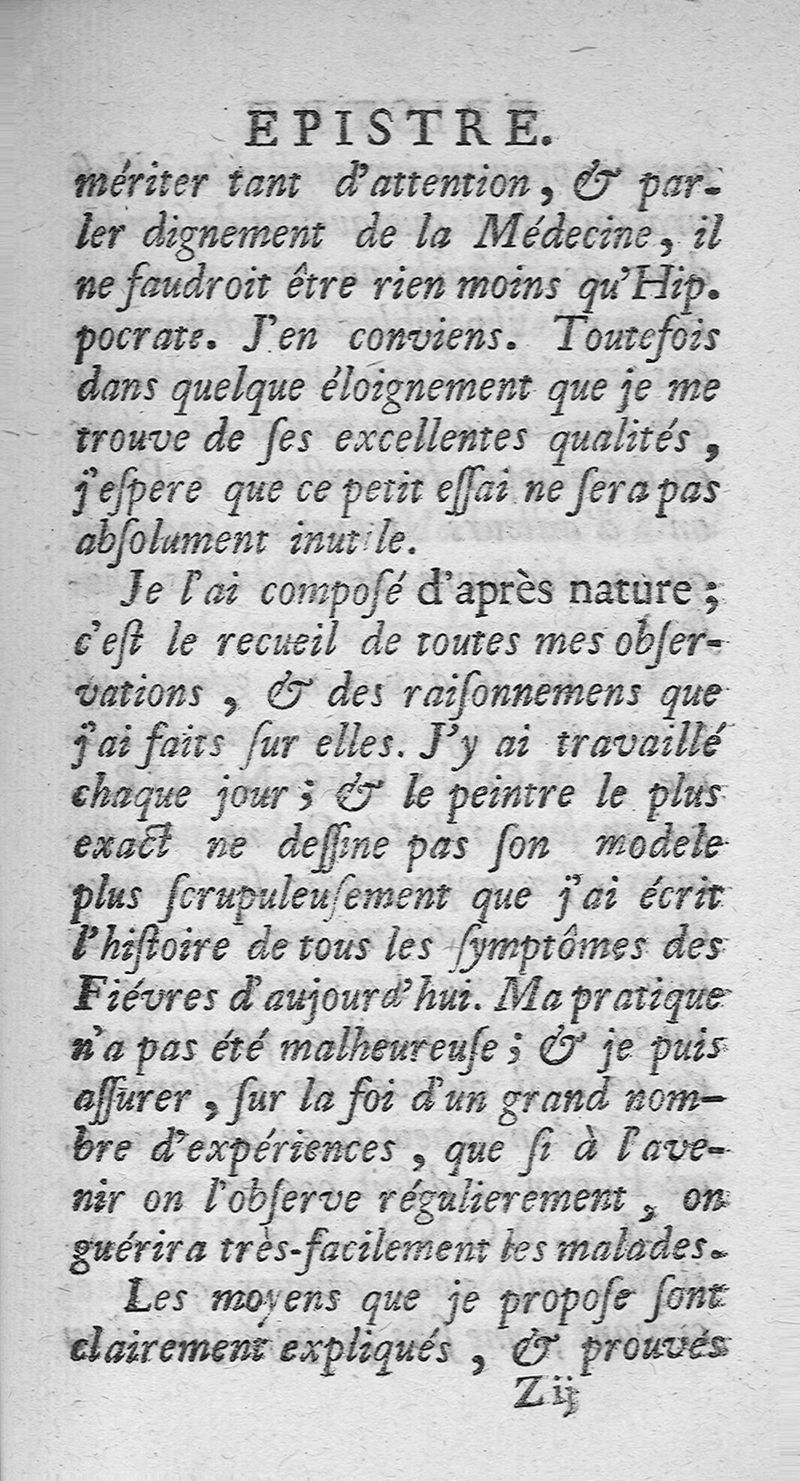 EPISTRE.
mériter tant d'attention, & par-
ler dignement de la Médecine, il
ne faudroit être rien moins qu'Hip.
pocrate. J'en conviens. Toutefois
dans quelque éloignement que je me
trouve de ſes excellentes qualités,
j'eſpere que ce petit eſſai ne ſera pas
abſolument inutile.
Je l'ai compoſé d'après nature;
c'eſt le recueil de toutes mes obſer-
vations, & des raiſonnemens que
j'ai faits ſur elles. J'y ai travaillé
chaque jour; & le peintre le plus
exact ne deſſine pas ſon modele
plus ſcrupuleuſement que j'ai écrit
l'hiſtoire de tous les ſymptômes des
Fiévres d'aujourd'hui. Ma pratique
n'a pas été malheureuſe; & je puis
aſſurer, ſur la foi d'un grand nom-
bre d'expériences, que ſi à l'ave-
nir on l'obſerve régulierement, on
guérira très-facilement les malades.
Les moyens que je propoſe ſont
clairement expliqués, & prouvés
Z ij